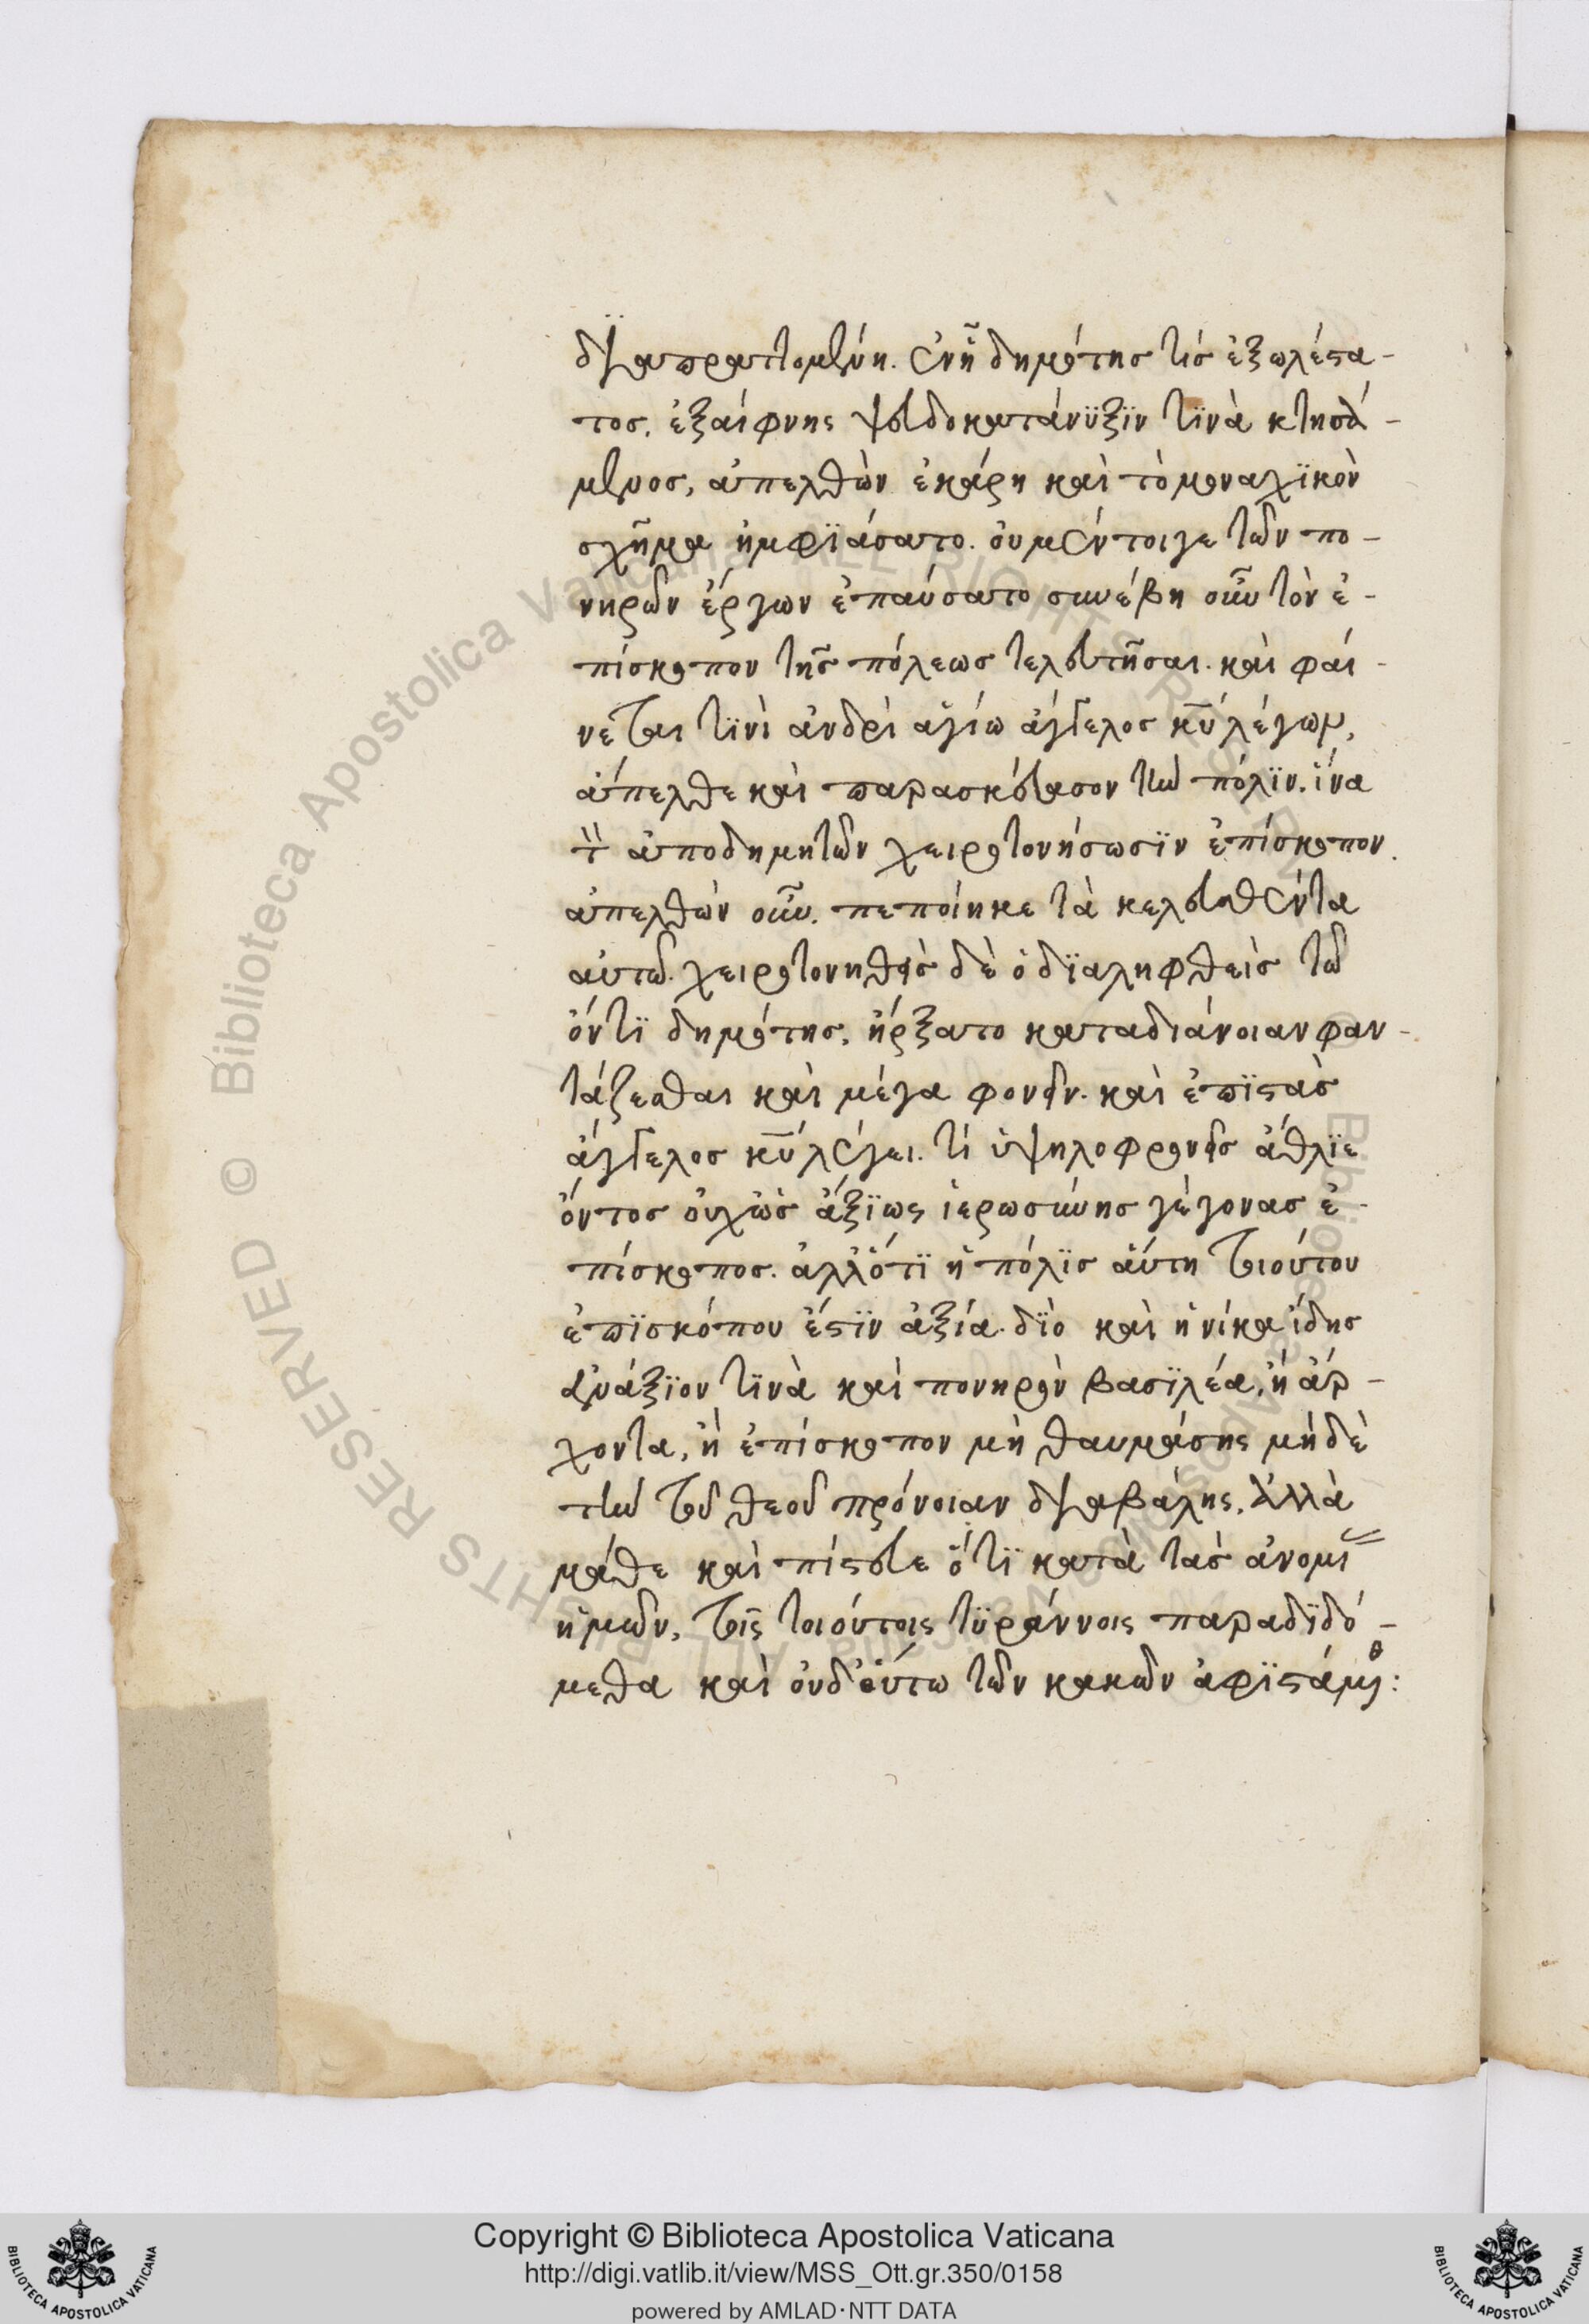 διαπραττομένη. ἐν ἧ δημότης τίς ἐξωλέστα-
τος. ἐξαίφνης ψευδοκατάνϋξϊν τϊνὰ κτησά-
μενος, ἀπελθὼν ἐκάρη καὶ τὸ μοναχϊκὸν
σχῆμα ἠμφϊάσατο. οὐ μέντοιγε τῶν πο-
νηρῶν ἔργων ἐπαύσατο συνέβη οὖν τὸν ἐ-
πίσκοπον τῆς πόλεως τελευτῆσαι. καὶ φαί-
νεται τϊνὶ ἀνδρὶ ἁγίω ἄγγελος κῡ λέγων,
ἄπελθε καὶ παρασκεύασον τὴν πόλϊν. ἵνα
τ̈ ἀποδημητῶν χειροτονήσωσϊν ἐπίσκοπον.
ἀπελθὼν οὖν. πεποίηκε τὰ κελευσθέντα
αὐτῶ. χειροτονηθεὶς δὲ ὁ δϊαληφθεὶς τῶ
ὄντϊ δημότης, ἤρξατο κατα διάνοιαν φαν-
τάζεσθαι καὶ μέγα φρονεῖν. καὶ ἐπϊστὰς
ἄγγελος κῡ λέγει. τί ὑψηλοφρονεῖς ἄθλϊε
ὄντος οὐχ ὡς ἄξϊως ἱερωσύνης γέγονας ἐ-
πίσκοπος. ἀλλ ὅτϊ ἡ πόλϊς αὕτη τοιούτου
ἐπϊσκόπου ἔστϊν ἀξία. δϊὸ καὶ ἡνίκα ἴδης
ἀνάξϊον τϊνὰ καὶ πονηρὸν βασϊλέα, ἢ ἄρ-
χοντα, ἢ ἐπίσκοπον μὴ θαυμάσης μήδὲ
τὴν τοῦ θεοῦ πρόνοιαν διαβάλης, ἀλλὰ
μάθε καὶ πίστευε ὅτϊ κατὰ τὰς ἀνομί
ἡμῶν, τοῖς τοιούτοις τϋράννοις παραδϊδό-
μεθα καὶ οὐδ οὕτω τῶν κακῶν ἀφϊστάμεθ:
Copyright © Biblioteca Apostolica Vaticana
http://digi.vatlib.it/view/MSS_Ott.gr.350/0158
powered by AMLAD·NTT DATA